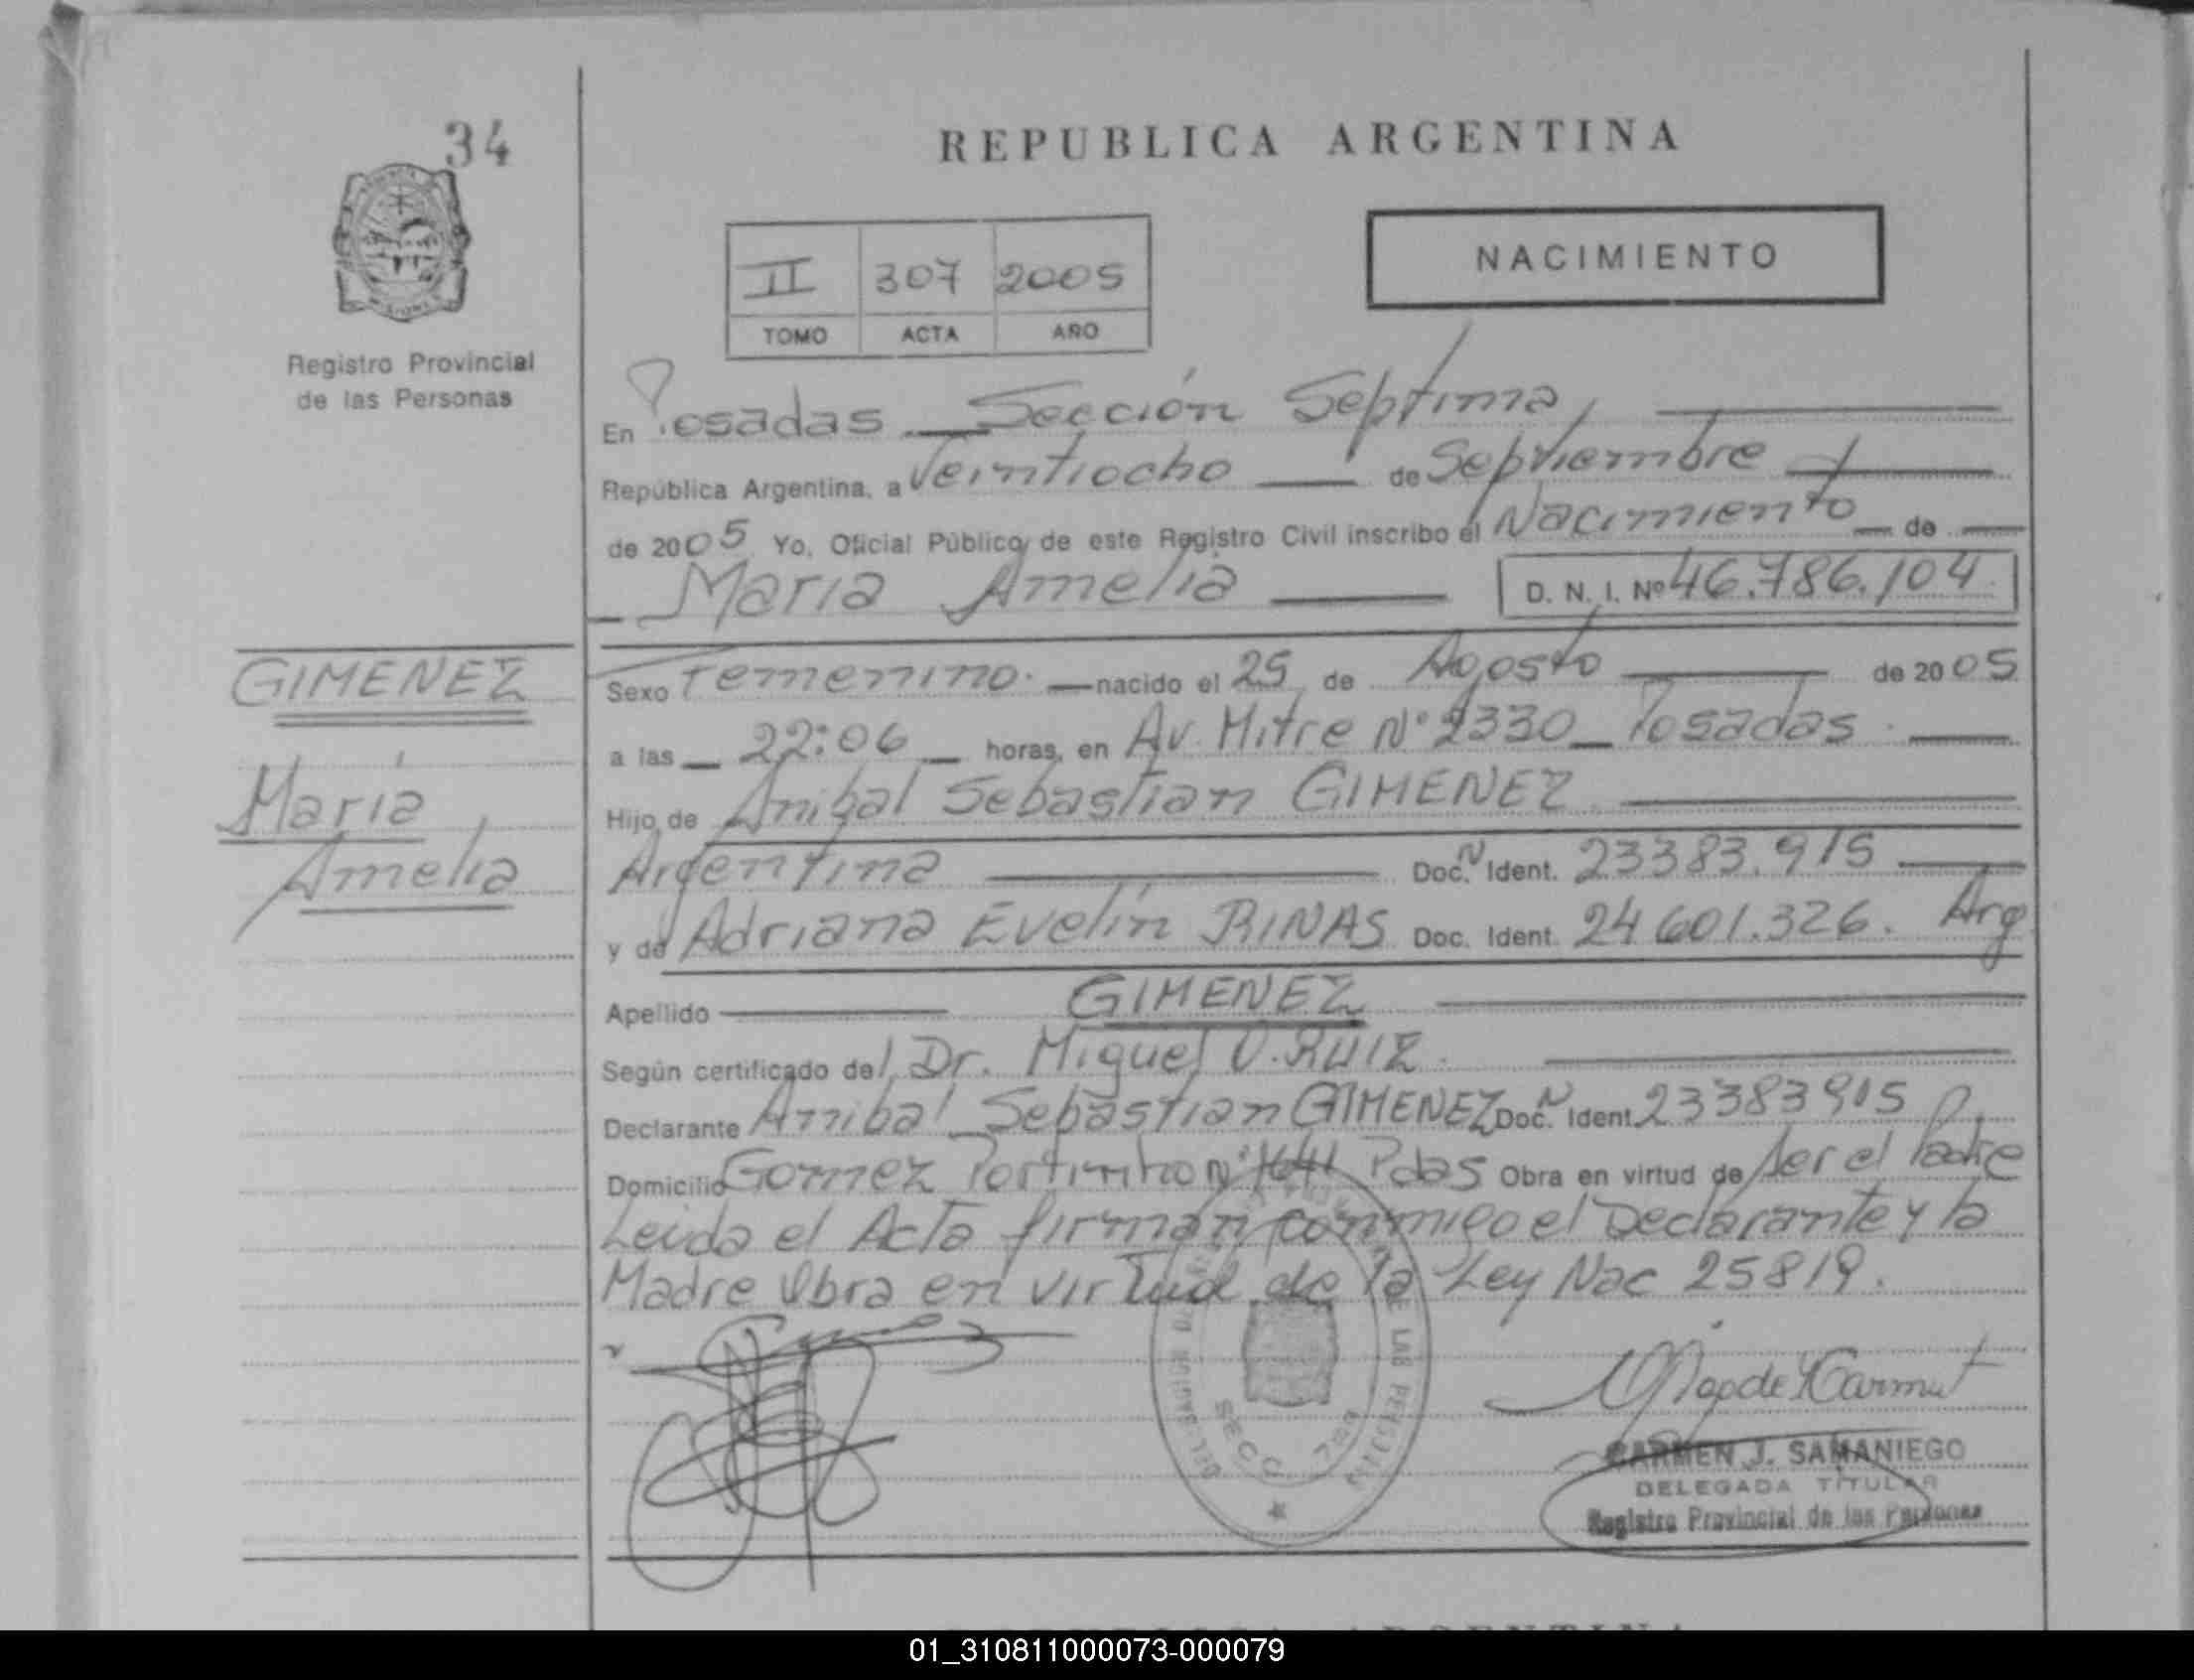 34
REPUBLICA ARGENTINA
II 307 2005
TOMO ACTA AÑO
NACIMIENTO
Registro Provincial
de las Personas
En Posadas Sección Septima,
República Argentina, a Veintiocho de Septiembre
de 2005 Yo, Oficial Público, de este Registro Civil inscribo el Nacimiento de
María Amelia D. N. I. Nº 46.786.104
GIMENEZ
María
Amelia
Sexo Femenino. nacido el 25 de Agosto de 2005
a las 22:06 horas, en Av. Mitre Nº 2330 Posadas.
Hijo de Anibal Sebastian GIMENEZ
Argentina Doc. N Ident. 23383.915
y de Adriana Evelin RINAS Doc. Ident. 24601.326. Arg
Apellido GIMENEZ
Según certificado del Dr. Miguel O. RUIZ.
Declarante Anibal Sebastian GIMENEZ Doc. N Ident. 23383915
Domicilio Gomez Portinho Nº 1641 Pdas Obra en virtud de ser el Padre
Leida el Acta firman conmigo el Declarante y la
Madre Obra en virtud de la Ley Nac 25819.
SECC
CARMEN J. SAMANIEGO
DELEGADA TITULAR
Registro Provincial de las Personas
01_310811000073-000079